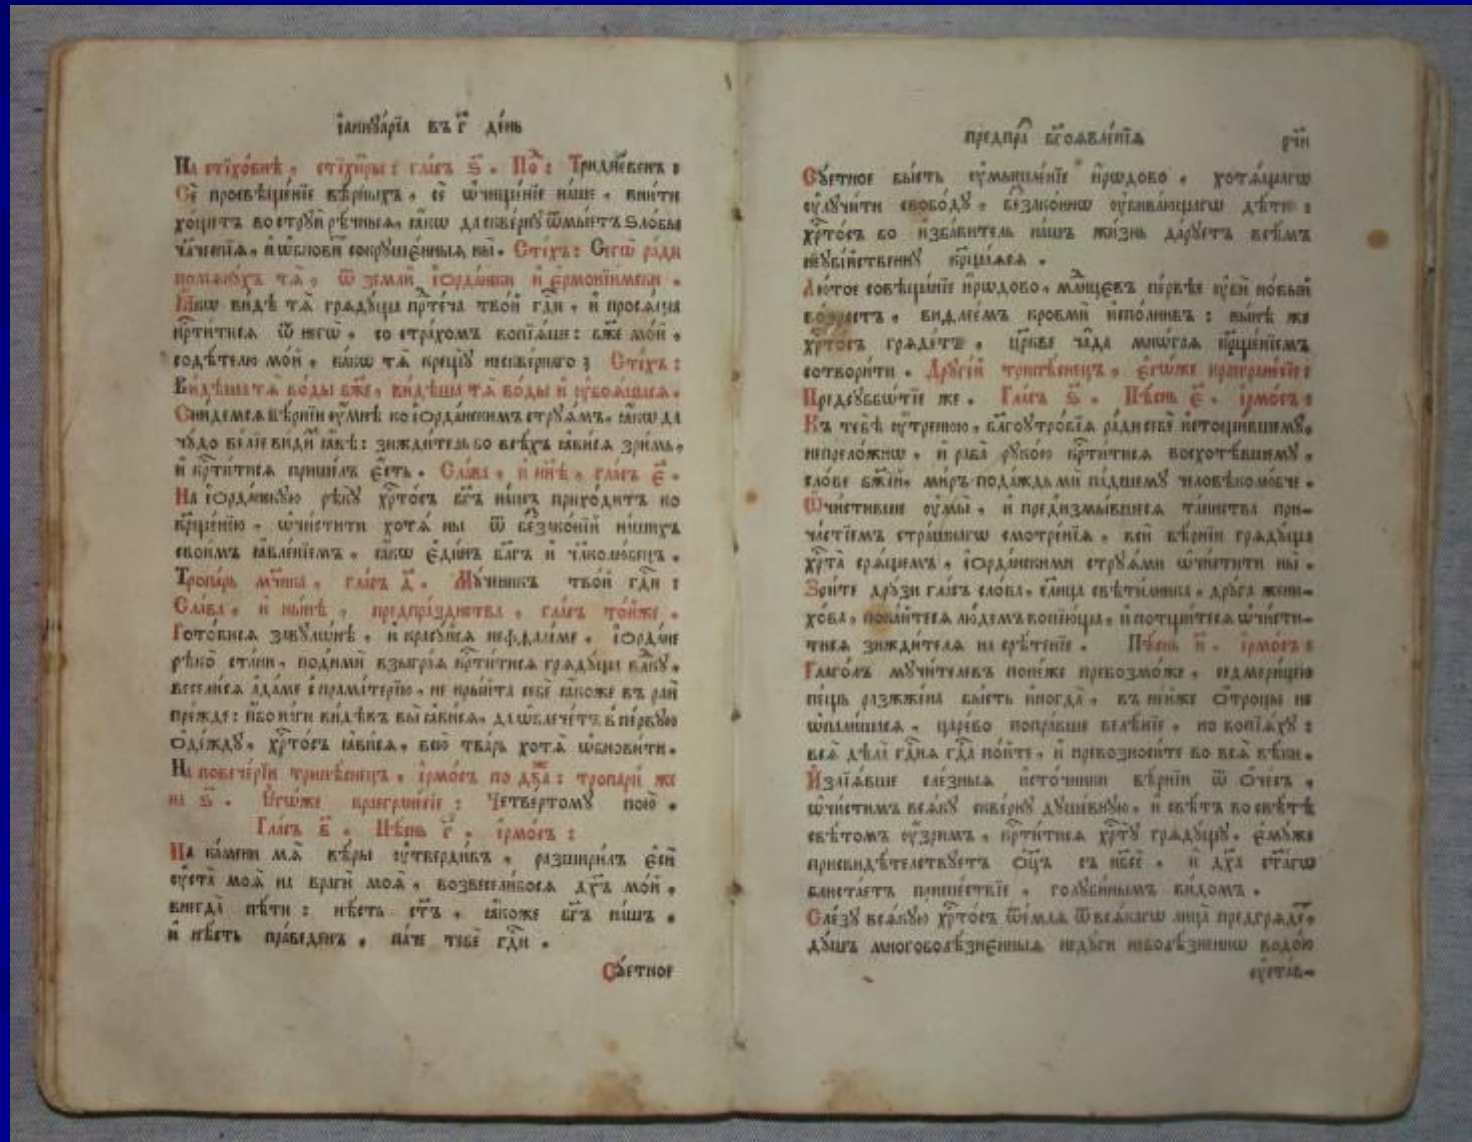 і҆аннꙋа́рїа въ г҃ де́нь
На стїхо́внѣ, стїхи̑ры: гла́съ ѕ҃. По́д: Тридне́венъ:
Сѐ просвѣще́нїе вѣ́рныхъ, сѐ ѡ҆чище́нїе на́ше, вни́ти
хо́щетъ во струи̑ рѣчны́ѧ, ꙗ҆́кѡ да скве́рнꙋ ѿмы́етъ ѕло́бы
чл҃ческїѧ, и҆ ѡ҆бнови́тъ сокрꙋше́нныѧ ны̀. Сті́хъ: Сегѡ̀ ра́ди
помѧнꙋ́хъ тѧ̀, ѿ землѝ і҆ѻрда́нски и҆ є҆рмонїи́мски.
Ꙗ҆́кѡ ви́дѣ тѧ̀ грѧдꙋ́ща прⷣте́ча тво́й гдⷭ҇и, и҆ просѧ́ща
крⷭ҇ти́тисѧ ѿ негѡ̀, со стра́хомъ вопїѧ́ше: бж҃е мо́й,
содѣ́телю мо́й, ка́кѡ тѧ̀ крещꙋ̀ несквернаго; Сті́хъ:
Ви́дѣша тѧ̀ во́ды бж҃е, ви́дѣша тѧ̀ во́ды и҆ ᲂу҆боѧ́шасѧ.
Сни́демсѧ вѣ́рнїи ᲂу҆мнѣ̀ ко і҆ѻрда́нскимъ стрꙋѧ́мъ, ꙗ҆́кѡ да
чꙋ́до ве́лїе ви́димъ ꙗ҆́вѣ: зижди́тель бо всѣ́хъ ꙗ҆ви́сѧ зри́мь,
и҆ крⷭ҇ти́тисѧ прише́лъ є҆́сть. Сла́ва, и҆ ны́нѣ, гла́съ є҃.
На і҆ѻрда́нскꙋю рѣкꙋ̀ хрⷭ҇то́съ бг҃ъ на́шъ прихо́дитъ ко
крⷳ҇ще́нїю, ѡ҆чи́стити хотѧ̀ ны̀ ѿ беззако́нїй на́шихъ
свои́мъ ꙗ҆вле́нїемъ, ꙗ҆́кѡ є҆ди́нъ бл҃гъ и҆ чл҃колю́бецъ.
Тропа́рь мч҃ника, гла́съ д҃. Мꙋ́ченикъ тво́й гдⷭ҇и:
Сла́ва, и҆ ны́нѣ, предпра́зднства, гла́съ то́йже.
Гото́висѧ завꙋлѡ́не, и҆ красꙋ́йсѧ нефѳалі́ме. і҆ѻрда́не
рѣко̀ ста́ни, подъимѝ взыгра́ѧ крⷭ҇ти́тисѧ грѧдꙋ́ща влⷣкꙋ,
весели́сѧ а҆да́ме с прама́терїю, не кры́йта себѐ ꙗ҆́коже въ раѝ
пре́жде: и҆́бо на́ги ви́дѣвъ вы̀ ꙗ҆ви́сѧ, да ѡ҆блече́тъ в пе́рвꙋю
ѻ҆де́ждꙋ, хрⷭ҇то́съ ꙗ҆ви́сѧ, всю̀ тва́рь хотѧ̀ ѡ҆бнови́ти.
На повече́рїи трипѣ́снецъ, і҆рмо́съ по два́: тропари̑ же
на ѕ҃. Є҆гѡ́же краегране́сїе: Четве́ртомꙋ пою̀.
Гла́съ в҃. Пѣ́снь г҃. і҆рмо́съ:
На ка́мени мѧ̀ вѣ́ры ᲂу҆тверди́въ, разшири́лъ є҆сѝ
ᲂу҆ста̀ моѧ̑ на врагѝ моѧ̑, возвесели́босѧ дꙋ́хъ мо́й,
внегда̀ пѣ́ти: нѣ́сть ст҃ъ, ꙗ҆́коже бг҃ъ на́шъ,
и҆ нѣ́сть пра́веденъ, па́че тебѐ гдⷭ҇и.
Сꙋ́етное
предпра́ бг҃оѧвле́нїѧ
рч҃и
Сꙋ́етное бы́сть ᲂу҆мышле́нїе и҆́рѡдово, хотѧ́щагѡ
ᲂу҆лꙋчи́ти свобо́дꙋ, беззако́ннѡ ᲂу҆бива́ющагѡ дѣ́ти:
хрⷭ҇то́съ бо и҆зба́витель на́шъ жи́знь да́рꙋетъ всѣ́мъ
неꙋбі́йственнꙋ крⷳ҇ща́ѧсѧ.
Лю́тое совѣща́нїе и҆́рѡдово, млⷣнцевъ пе́рвѣе ᲂу҆бѝ но́вый
во́зрастъ, видлее́мъ кровмѝ и҆спо́лнивъ: ны́нѣ же
хрⷭ҇то́съ грѧде́тъ, цр҃кве ча̑да мнѡ́гаѧ крⷳ҇ще́нїемъ
сотвори́ти. Дрꙋгі́й трипѣ́снецъ, є҆гѡ́же краегране́сїе:
Предсꙋббѡ́тїе же. Гла́съ ѕ҃. Пѣ́снь є҃. і҆рмо́съ:
Къ тебѣ̀ ᲂу҆́тренюю, бл҃гоꙋтро́бїѧ ра́ди себѐ и҆стощи́вшемꙋ,
непрело́жнѡ, и҆ раба̀ рꙋко́ю крⷭ҇ти́тисѧ восхотѣ́вшемꙋ,
сло́ве бж҃їй, ми́ръ пода́ждь мѝ па́дшемꙋ человѣколю́бче.
Ѡ҆чи́стивше ᲂу҆мы̀, и҆ предъизмы́вшесѧ та́инства при-
ча́стїемъ стра́шнагѡ смотре́нїѧ, всѝ вѣ́рнїи грѧдꙋ́ща
хрⷭ҇та̀ срѧ́щемъ, і҆ѻрда́нскими стрꙋѧ́ми ѡ҆чи́стити ны̀.
Зри́те дрꙋ́зи гла́съ сло́ва, сл҃нца свѣти́льника, дрꙋ́га жени-
хо́ва, пока́йтесѧ лю́демъ вопїю́ща, и҆ потщи́тесѧ ѡ҆чи́сти-
тисѧ зижди́телѧ на срѣ́тенїе. Пѣ́снь и҃. і҆рмо́съ:
Глаго́лъ мꙋчи́телевъ поне́же превозмо́же, седмери́цею
пе́щь разжже́на бы́сть и҆ногда̀, въ не́йже ѻ҆́троцы не
ѡ҆пали́шасѧ, царе́во попра́вше велѣ́нїе, но вопїѧ́хꙋ:
всѧ̑ дѣла̀ гдⷭ҇нѧ гдⷭ҇а по́йте, и҆ превозноси́те во всѧ̑ вѣ́ки.
И҆злїѧ́вше сле́зныѧ и҆сто́чники вѣ́рнїи ѿ ѻ҆че́съ,
ѡ҆чи́стимъ всѧ́кꙋ скве́рнꙋ дꙋше́внꙋю, и҆ свѣ́тъ во свѣ́тѣ
свѣ́томъ ᲂу҆́зримъ, крⷭ҇ти́тисѧ хрⷭ҇тꙋ̀ грѧдꙋ́щꙋ, є҆мꙋ́же
присвидѣ́телствꙋетъ ѻ҆ц҃ъ съ нб҃сѐ, и҆ дх҃а ст҃агѡ
блиста́етъ прише́ствїе, голꙋби́нымъ ви́домъ.
Сле́зꙋ всѧ́кꙋю хрⷭ҇то́съ ѿе́млѧ ѿ всѧ́кагѡ лица̀ предгрѧде́тъ,
дꙋ́шъ многоболѣ́зненныѧ недꙋ́ги неболѣ́зненнѡ водо́ю
ᲂу҆ста́в-